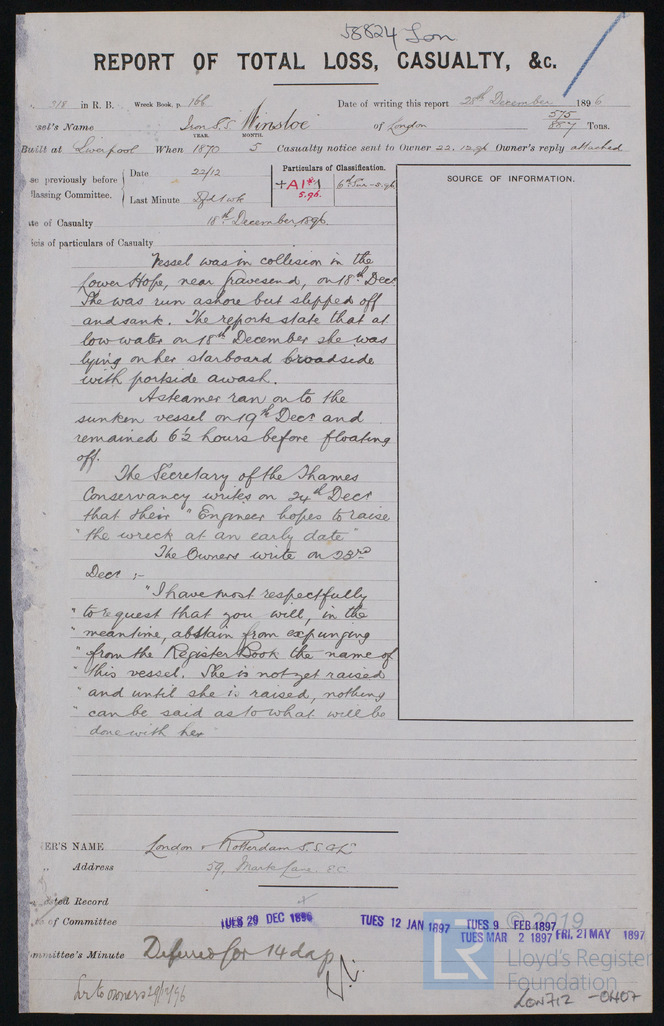 58824 Lon
REPORT OF TOTAL LOSS, CASUALTY, &c.
718 in R. B. Wreck Book, p. 166 Date of writing this report 28th December 1896
sel's Name Iron S.S. Winsloe of London 575 857 Tons.
YEAR. MONTH.
Built at Liverpool When 1870 5 Casualty notice sent to Owner 22.12.96 Owner's reply attached
se previously before Classing Committee. Date 22/12 Particulars of Classification. SOURCE OF INFORMATION.
Last Minute Dfd 1 wk +A1* 5.96
te of Casualty 18th December, 1896.
cis of particulars of Casualty
Vessel was in collision in the
Lower Hope, near Gravesend, on 18th Decr
She was run ashore but slipped off
and sank. The reports state that at
low water on 18th December she was
lying on her starboard broadside
with portside awash.
A steamer ran on to the
sunken vessel on 19th Decr and
remained 6½ hours before floating
off.
The Secretary of the Thames
Conservancy writes on 24th Decr
that their "Engineer hopes to raise
"the wreck at an early date"
The Owners write on 23rd
Decr :-
"I have most respectfully
"to request that you will, in the
"meantime, abstain from expunging
"from the Register Book the name of
"this vessel. She is not yet raised
"and until she is raised, nothing
"can be said as to what will be
done with her
ER'S NAME London & Rotterdam S.S. Co Ld
" Address 59, Mark Lane E.C.
ted Record
of Committee TUES 29 DEC 1896 TUES 12 JAN 1897 TUES 9 FEB 1897
TUES MAR 2 1897 FRI. 21 MAY 1897
ommittee's Minute Deferred for 14 days
Lr to owners 29/12/96
© 2019
LR
Lloyd's Register
Foundation
LON712-0407